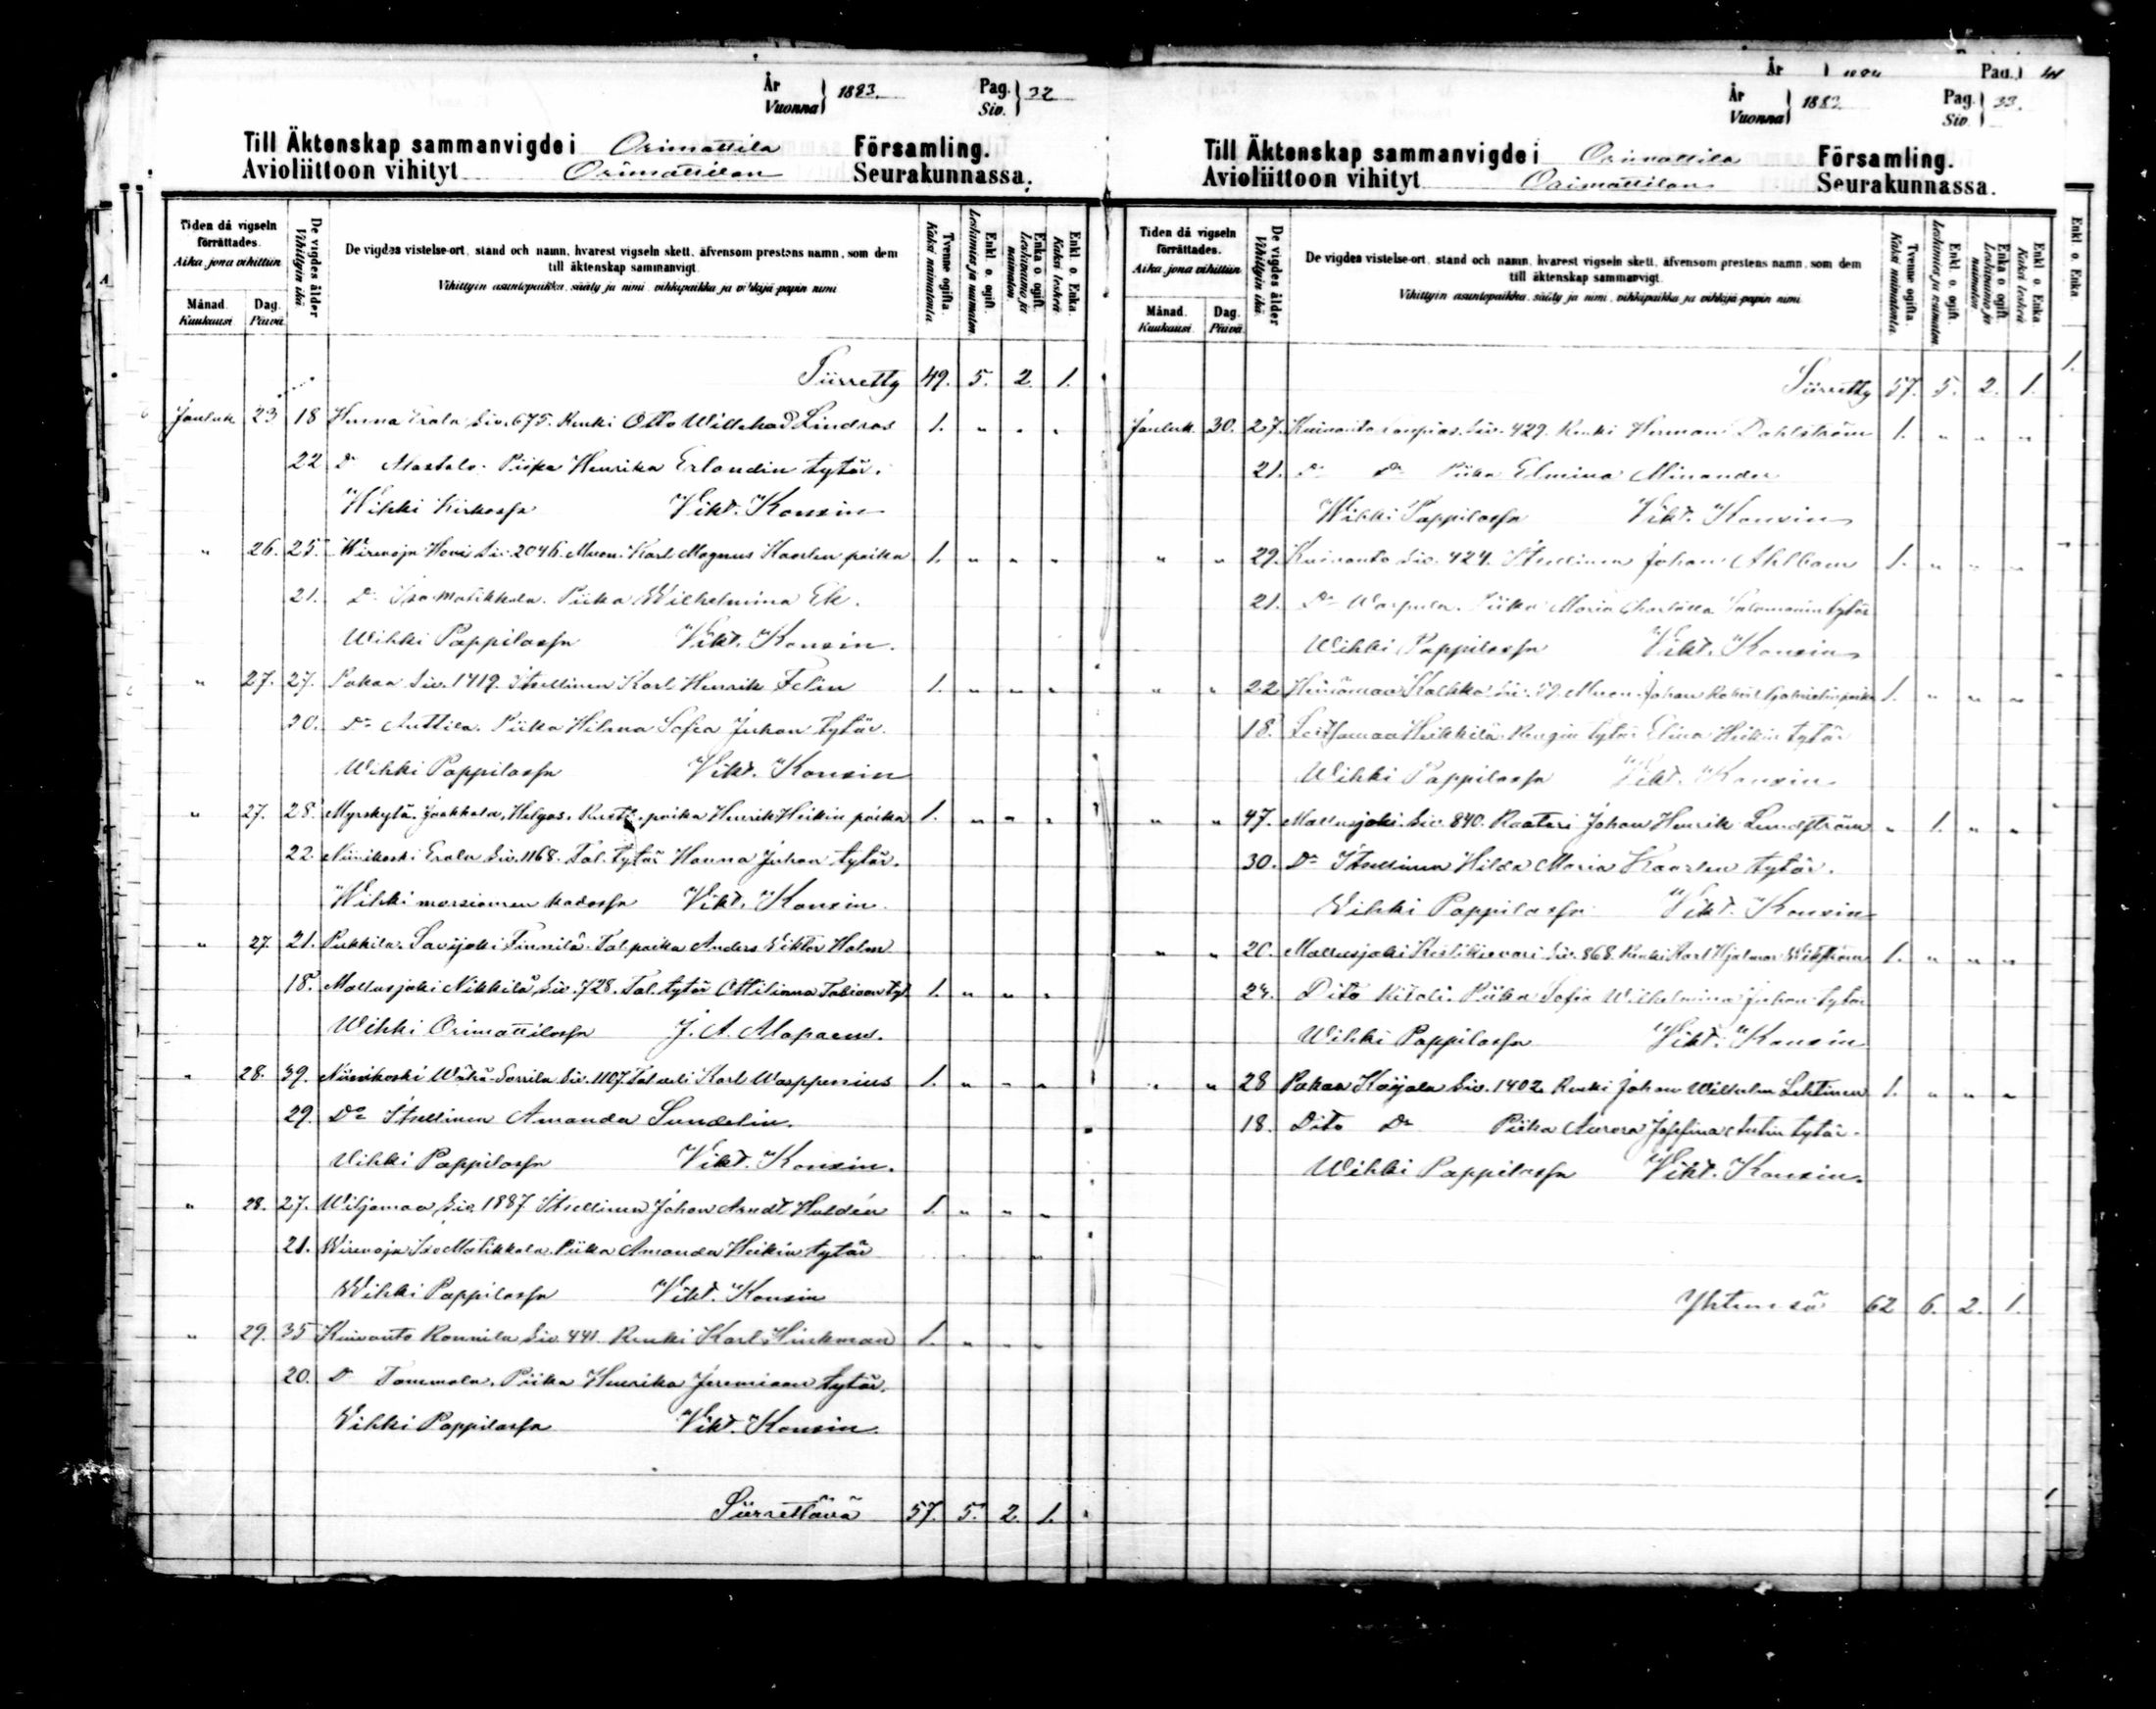 År Vuonna } 1883. Pag. Siv. } 32
Till Äktenskap sammanvigde i Orimattila Församling.
Avioliittoon vihityt Orimattilan Seurakunnassa.
Tiden då vigseln förrättades. Aika jona vihittiin
Månad. Kuukausi
Dag. Päivä
De vigdes ålder Vihittyin ikä
De vigdes vistelse-ort, stånd och namn, hvarest vigseln skett, äfvensom prestens namn, som dem till äktenskap sammanvigt.
Vihittyin asuntopaikka, sääty ja nimi, vihkipaikka ja vihkijä-papin nimi
Tvenne ogifta. Kaksi naimatonta.
Enkl. o. ogift. Leskimies ja naimaton.
Enka o ogift. Leskivaimo ja naimaton.
Enkl. o. Enka. Kaksi leskeä
Siirretty 49. 5. 2. 1.
Jouluk. 23 18 Siv. 675. Renki Otto Willehad Lindros 1. " " "
22 Do Mastola. Piika Henrika Erlandin tytär.
Wihki Kirkossa Vikt. Konsin
" 26. 25. Wirenoja Hovi Siv. 2046. Muon. Karl Magnus Kaarlen poika 1. " " "
21. Do Iso Matikkala. Piika Wilhelmina Ek.
Wihki Pappilassa Vikt. Konsin.
" 27. 27. Pakaa Siv. 1419. Itsellinen Karl Henrik Felin 1. " " "
30. Do Anttila. Piika Hilma Sofia Juhan tytär.
Wihki Pappilassa Vikt. Konsin
" 27. 28. Myrskylä. Jaakkola, Helgas. poika Henrik Heikin poika 1. " " "
22. Niinikoski Erola Siv. 1168. Tal. tytär Hanna Juhan tytär.
Wihki morsiamen kodossa Vikt. Konsin.
" 27. 21. Pukkila. Savijoki Finnilä. Tal. poika Anders Viktor Holm
18. Mallusjoki Nikkilä Siv. 728. Tal. tytär Ottiliana Tobiaan tyt. 1. " " "
Wihki Orimattilassa J. A.
" 28. 39. Niinikoski Wähä-Sorrila Siv. 1107. Karl Wappenius 1. " " "
29. Do Itsellinen Amanda Sundelin.
Wihki Pappilassa Vikt. Konsin.
" 28. 27. Wiljamaa Siv. 1887 Itsellinen Johan Arndt Huldén 1. " " "
21. Wirenoja Iso Matikkala. Piika Amanda Heikin tytär
Wihki Pappilassa Vikt. Konsin
" 29. 35 Kuivanto Ronnila Siv. 441. Renki Karl Hinkman 1. " " "
20. Do Tommola. Piika Henrika Jeremiaan tytär.
Wihki Pappilassa Vikt. Konsin.
Siirrettävä 57. 5. 2. 1.
År
Pag.
År Vuonna } 1883. Pag. Siv. } 33.
Till Äktenskap sammanvigde i Orimattila Församling.
Avioliittoon vihityt Orimattilan Seurakunnassa.
Tiden då vigseln förrättades. Aika jona vihittiin
Månad. Kuukausi
Dag. Päivä
De vigdes ålder Vihittyin ikä
De vigdes vistelse-ort, stånd och namn, hvarest vigseln skett, äfvensom prestens namn, som dem till äktenskap sammanvigt.
Vihittyin asuntopaikka, sääty ja nimi, vihkipaikka ja vihkijä-papin nimi
Tvenne ogifta. Kaksi naimatonta.
Enkl. o. ogift. Leskimies ja naimaton.
Enka o ogift. Leskivaimo ja naimaton
Enkl o. Enka Kaksi leskeä
Enkl. o. Enka
1.
Siirretty 57. 5. 2. 1.
Jouluk. 30. 27. Kuivanto Siv. 429. Renki Herman Dahlström 1. " " "
21. Do Do Piika Elmina Minander
Wihki Pappilassa Vikt. Konsin
" " 29. Kuivanto Siv. 424. Itsellinen Johan Ahlbom 1. " " "
21. Do Warpula. Piika Maria Charlotta Salomonin tytär
Wihki Pappilassa Vikt. Konsin
" " 22 Heinämaa Muon. Johan 1. " " "
18. Heikkilä. Rengin tytär Elina Heikin tytär
Wihki Pappilassa Vikt. Konsin.
" " 47. Mallusjoki. Siv. 840. Raatari Johan Henrik Lundström " 1. " "
30. Do Itsellinen Hilda Maria Kaarlen tytär.
Wihki Pappilassa Vikt. Konsin
" " 20. Mallusjoki Kestikievari Siv. 868. Renki Karl Hjalmar Wikström 1. " " "
24. Dito Piika Sofia Wilhelmina Juhan tytär
Wihki Pappilassa Vikt. Konsin
" " 28 Pakaa Siv. 1402 Renki Johan Wilhelm Lehtinen 1. " " "
18. Dito Do Piika Aurora Josefina Antin tytär.
Wihki Pappilassa Vikt. Konsin.
Yhteensä 62 6. 2. 1.